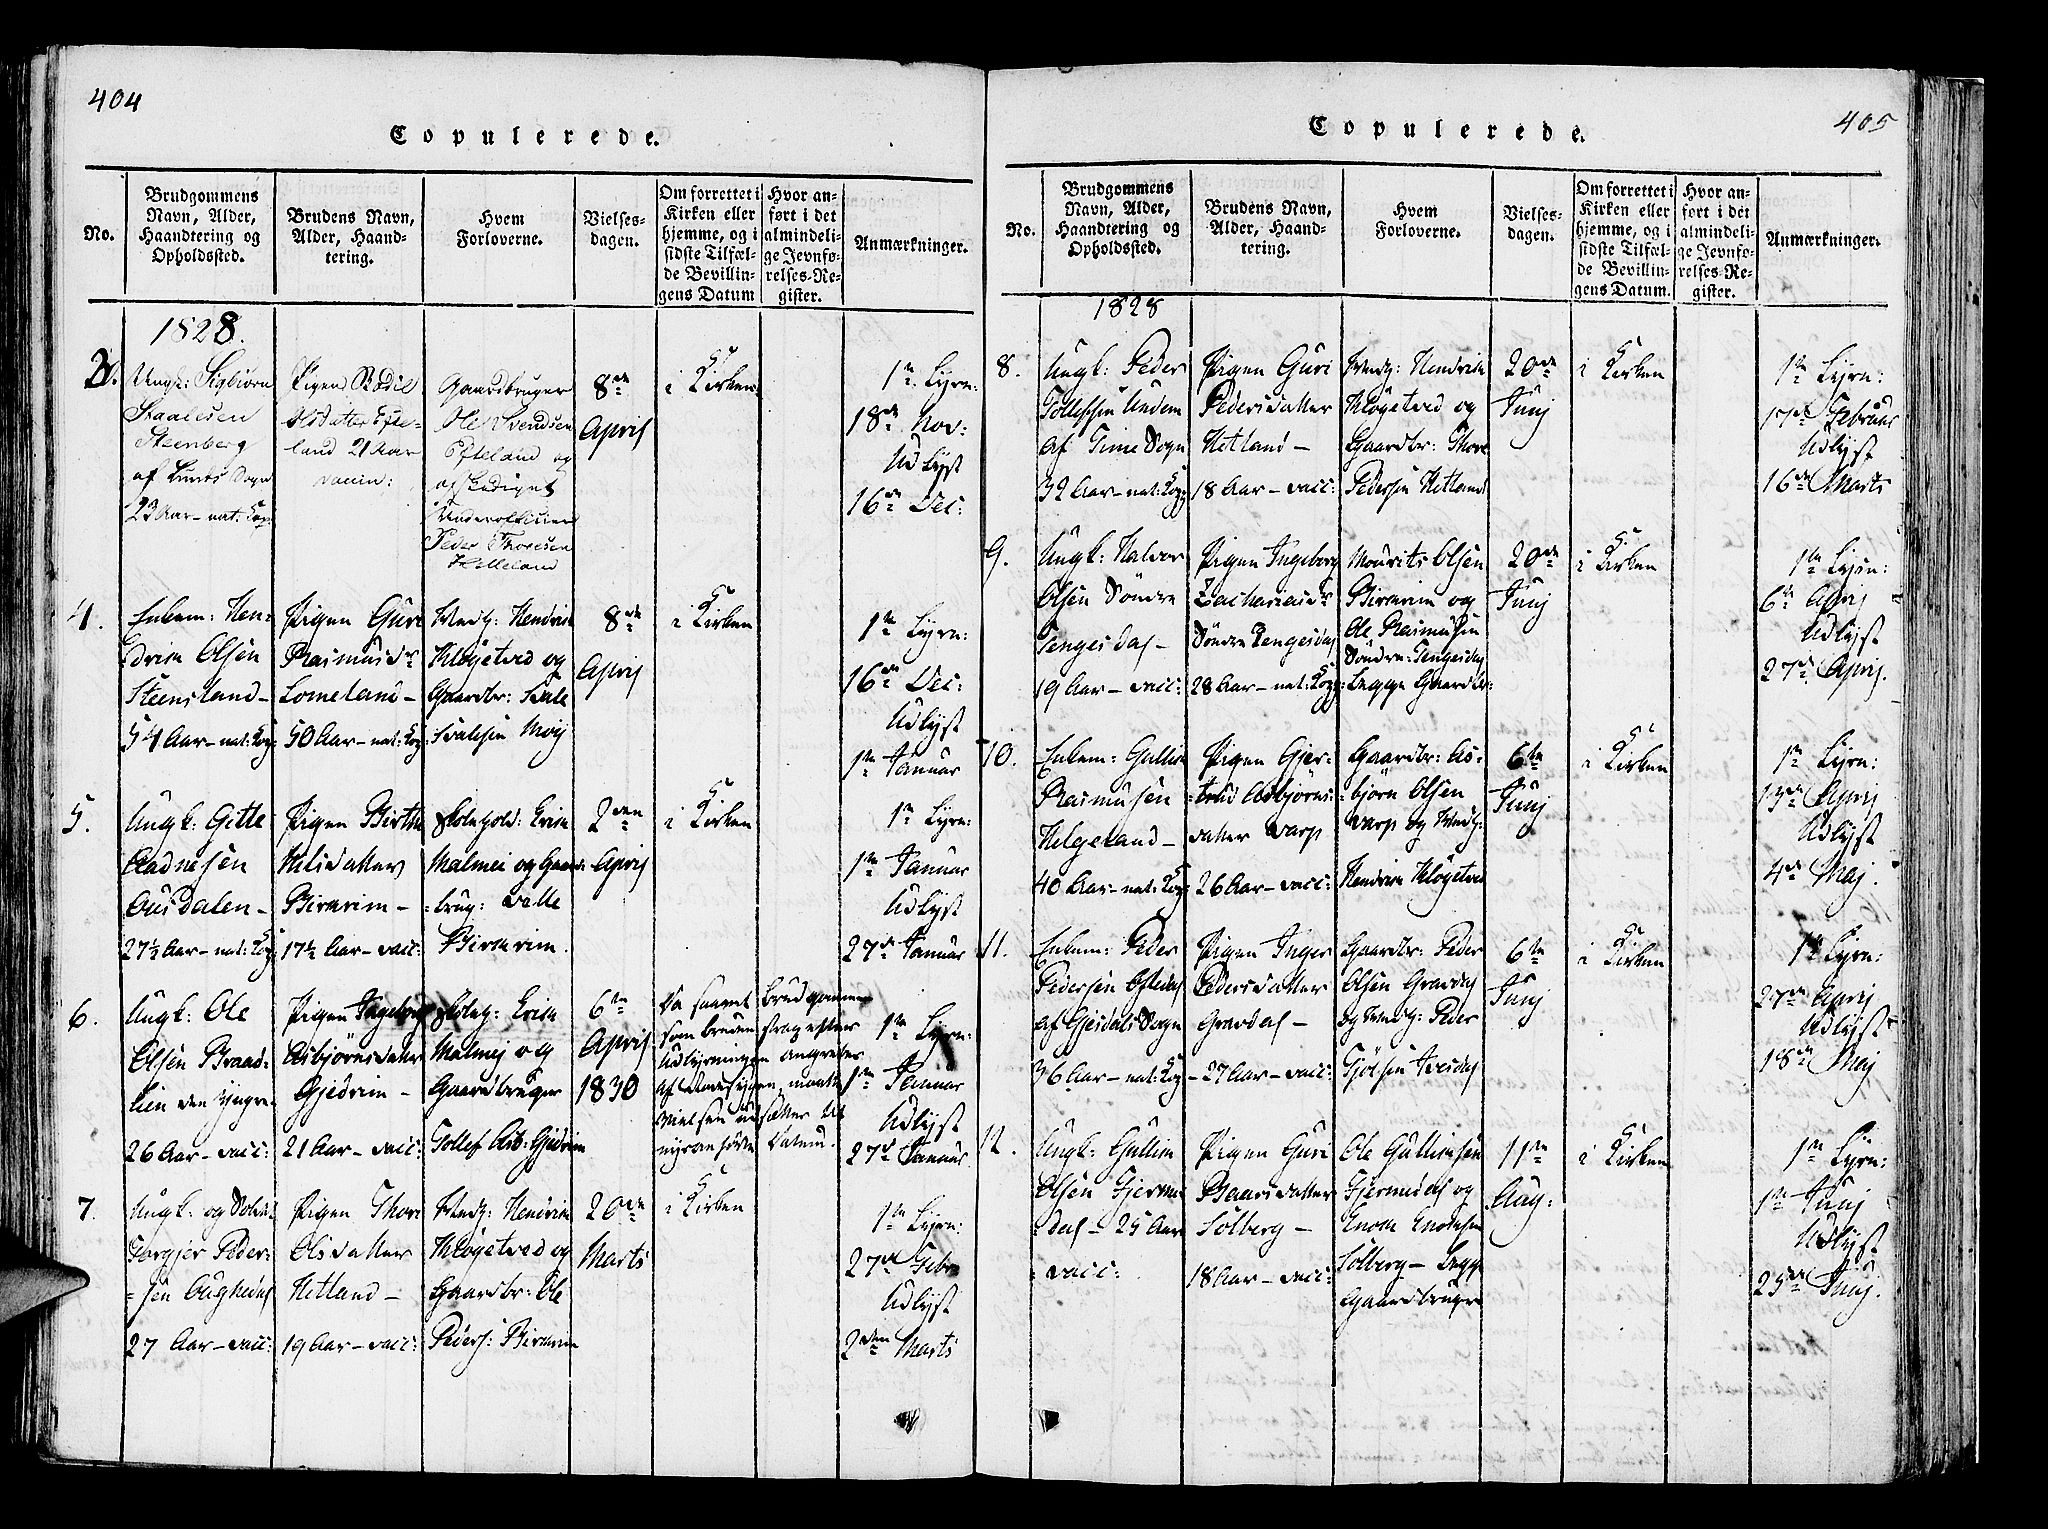 404
Copulerede.
No.
Brudgommens
Navn, Alder,
Haandtering og
Opholdssted.
Brudens Navn,
Alder, Haand-
tering.
Hvem
Forloverne.
Vielses-
dagen.
Om forrettet i
Kirken eller
hjemme, og i
sidste Tilfæl-
de Bevillin-
gens Datum
Hvor an-
ført i det
almindeli-
ge Jevnfø-
relses-Re-
gister.
Anmærkninger.
1828.
Ungk: Sigbjørn
Staalesen
Steenberg
af Lunds Sogn
23 Aar – nat: Kop
Pigen Bodil
Olsdatter Efte-
land 21 Aar
vaccin:
Gaardbruger
Ole Svendsen
Efteland og
afskediget
Underofficeer
Peder Thoresen
Helleland
8de
April
i Kirken
1ste Lysn:
18de Nov:
Udlyst
16de Dec:
4.
Enkem: Hen-
drich Olsen
Steensland –
54 Aar – nat: Kop:
Pigen Guri
Rasmusdr
Lomeland –
50 Aar – nat: Kop:
Hendrich
Kløgetved og
Gaardbr: Sale
Svalesen Moij
8de
April
i Kirken
1ste Lysn:
16de Dec:
Udlyst
1ste Januar
5.
Ungk: Gitle
Aadnesen
Ousdalen –
27½ Aar – nat: Kop:
Pigen Birthe
Nilsdatter
Birkrim –
17½ Aar – vacc:
Skolehold: Erich
Malmei og Gaard-
brug: Valle
Birkrim.
2den
April
i Kirken
1ste Lysn:
1ste Januar
Udlyst
27de Januar
6.
Ungk: Ole
Olsen Braad-
lien den yngre
26 Aar – vacc:
Pigen Ingeborg
Asbjørnsdatter
Gjedrim –
21 Aar – vacc:
Skoleh: Erich
Malmej og
Gaardbruger
Tollef Asb: Gjedrim
6te
April
1830
Da saavel brudgommen
som bruden strax efter
Udlysningen angrebes
af Nervesygen, maatte
Vielsen udsættes til
nysanførte Datum.
1ste Lysn:
1ste Januar
Udlyst
27de Januar
7.
Ungk: og Soldat
Torgjer Peder-
sen Aughedal
27 Aar – vacc:
Pigen Thore
Olsdatter
Hetland –
19 Aar – vacc:
Hendrich
Kløgetved og
Gaardbr: Ole
Peders: Birkrim
20de
Marts
i Kirken
1ste Lysn:
27de Febr
Udlyst
2den Marts
405
Copulerede.
No.
Brudgommens
Navn, Alder,
Haandtering og
Opholdssted.
Brudens Navn,
Alder, Haand-
tering.
Hvem
Forloverne.
Vielses-
dagen.
Om forrettet i
Kirken eller
hjemme, og i
sidste Tilfæl-
de Bevillin-
gens Datum.
Hvor an-
ført i det
almindeli-
ge Jevnfø-
relses-Re-
gister.
Anmærkninger.
1828
8.
Ungk: Peder
Tollefsen Undem
af Time Sogn
32 Aar – nat: Kop:
Pigen Guri
Pedersdatter
Hetland –
18 Aar – vacc:
Hendrich
Kløgetved og
Gaardbr: Thore
Pedersen Hetland
20de
Junj
i Kirken
1ste Lysn:
17de Februar
Udlyst
16de Marts
9.
Ungk: Halvor
Olsen Søndre
Tengesdal –
19 Aar – vacc:
Pigen Ingeborg
Zachariasdr
Søndre Tengesdal
28 Aar – nat: Kop:
Mourits Olsen
Birkrim og
Ole Rasmusen
Søndre: Tengesdal
Begge Gaardbr:
20de
Junj
i Kirken
1ste Lysn:
6te April
Udlyst
27de April.
10.
Enkem: Gullich
Rasmusen
Helgeland –
40 Aar – nat: Kop:
Pigen Gjer-
trud Asbjørns-
datter Varp
26 Aar – vacc:
Gaardbr: As-
bjørn Olsen
Varp og
Hendrich Kløgetved
6te
Junj
i Kirken
1ste Lysn:
13de April
Udlyst
4de Maj.
11.
Enkem: Peder
Pedersen
af Gjesdals Sogn
36 Aar – nat: Kop:
Pigen Inger
Pedersdatter
Gravdal –
27 Aar – vacc:
Gaardbr: Peder
Olsen Gravdal
og Peder
6te
Junj
i Kirken
1ste Lysn:
27de April
Udlyst
18de Maj
12.
Ungk: Gullich
Olsen Gjermun-
dal – 25 Aar
vacc:
Pigen Guri
Baarsdatter
Solberg –
18 Aar – vacc:
Ole Gullichsen
Gjermundal og
Enok Enoksen
Solberg – Begge
Gaardbrugere
11te
Aug:
i Kirken
1ste Lysn:
1ste Junj
Udlyst
25de Junj.